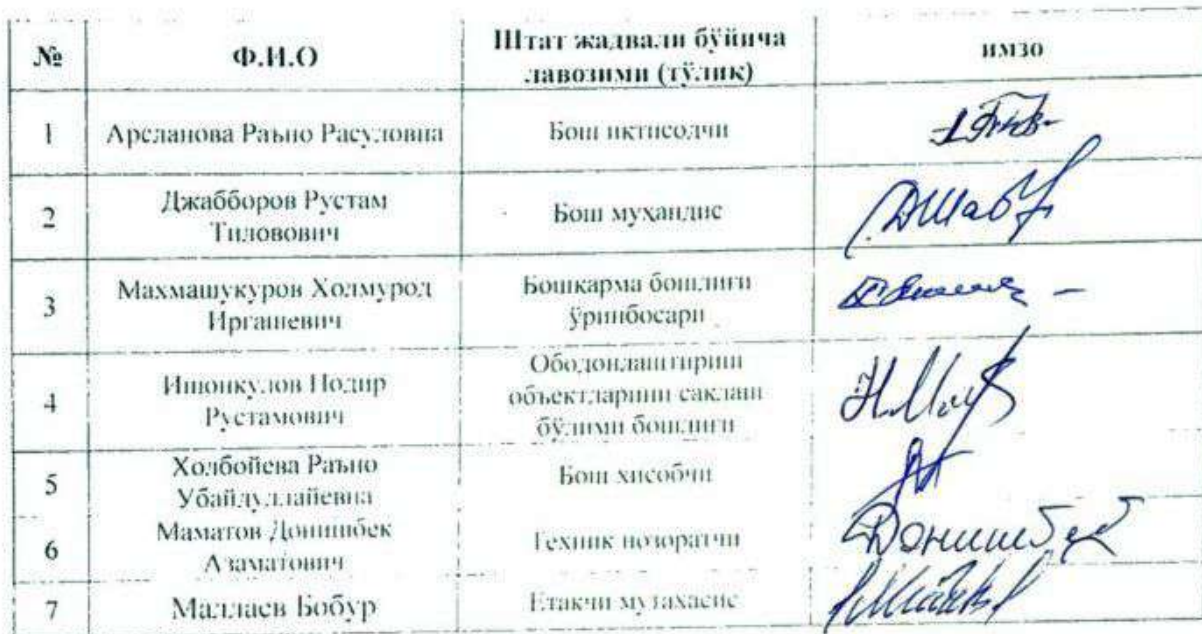 №
Ф.И.О
Штат жадвали бўйича
лавозими (тўлиқ)
имзо
1
Арсланова Раъно Расуловна
Бош иқтисодчи
2
Джабборов Рустам
Тиловович
Бош муҳандис
3
Махмашукуров Холмурод
Иргашевич
Бошқарма бошлиғи
ўринбосари
4
Ишонкулов Нодир
Рустамович
Ободонлаштириш
объектларини сақлаш
бўлими бошлиғи
5
Холбойева Раъно
Убайдуллайевна
Бош хисобчи
6
Маматов Донишбек
Азаматович
Техник нозоратчи
Донишбек
7
Маллаев Бобур
Етакчи мутахасис